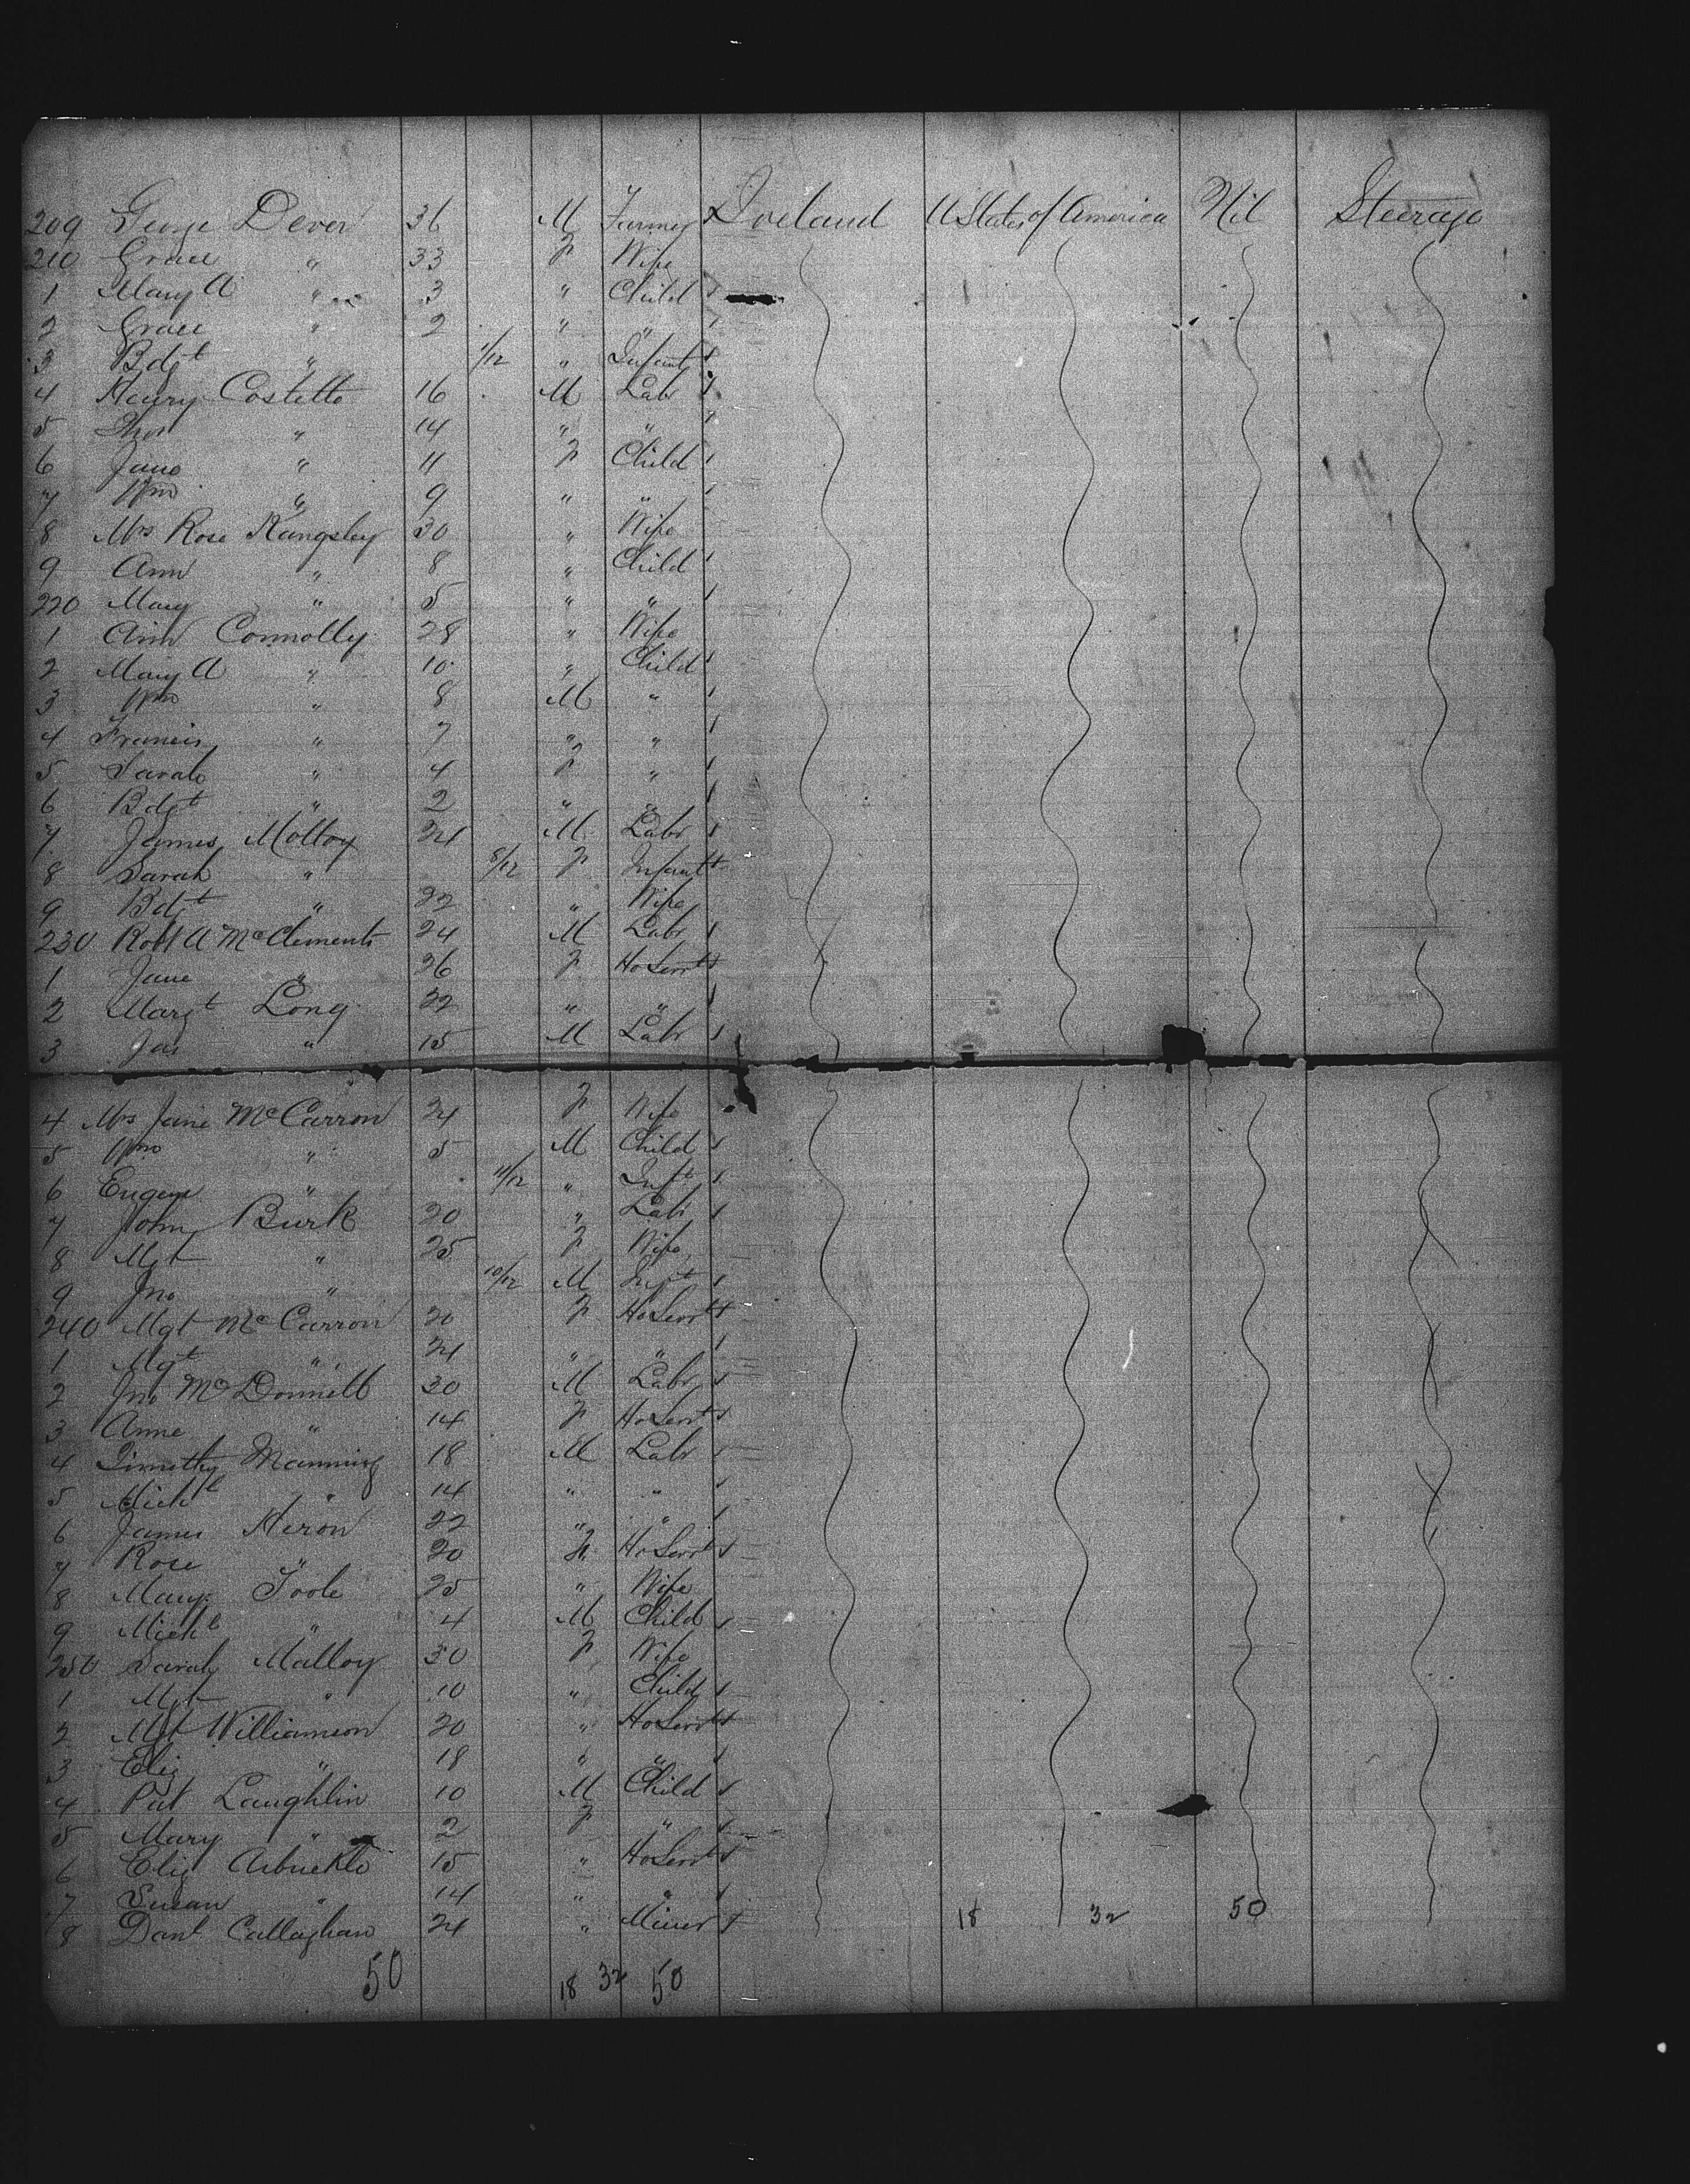 209 George Dever 36 M Farmer Ireland U States of America Nil Steerage
210 Grace " 33 F Wife
1 Mary A " 3 " Child
2 Grace " 2 " "
3 Bdgt " 1/12 " Infant
4 Henry Costello 16 M Labr
5 Thos " 14 " "
6 Jane " 11 F Child
7 Wm " 9 " "
8 Mrs Rose Kangsley 30 " Wife
9 Ann " 8 " Child
220 Mary " 5 " "
1 Ann Connolly 28 " Wife
2 Mary A " 10 " Child
3 Wm " 8 M "
4 Francis " 7 " "
5 Sarah " 4 F "
6 Bdgt " 2 " "
7 James Molloy 24 M Labr
8 Sarah " 8/12 F Infant
9 Bdgt " 22 " Wife
230 Robt A McClements 24 M Labr
1 Jane " 26 F HoServt
2 Margt Long 22 " "
3 Jas " 15 M Labr
4 Mrs Jane McCarron 24 F Wife
5 Wm " 5 M Child
6 Eugene " 11/12 " Inft
7 John Burk 30 " Labr
8 Mgt " 25 F Wife
9 Jno " 10/12 M Inft
240 Mgt McCarron 20 F HoServt
1 Mgt " 24 " "
2 Jno McDonnell 30 M Labr
3 Anne " 14 F HoServt
4 Timothy Manning 18 M Labr
5 Michl " 14 " "
6 James Heron 22 " "
7 Rose " 20 F HoServt
8 Mary Toole 25 " Wife
9 Michl " 4 M Child
250 Sarah Malloy 30 F Wife
1 Mgt " 10 " Child
2 Mgt Williamson 20 " HoServt
3 Eliz " 18 " "
4 Pat Laughlin 10 M Child
5 Mary " 2 F "
6 Eliz Arbuckle 15 " HoServt
7 Susan " 14 " "
8 Danl Callaghan 24 " Miner 18 32 50
50 18 32 50